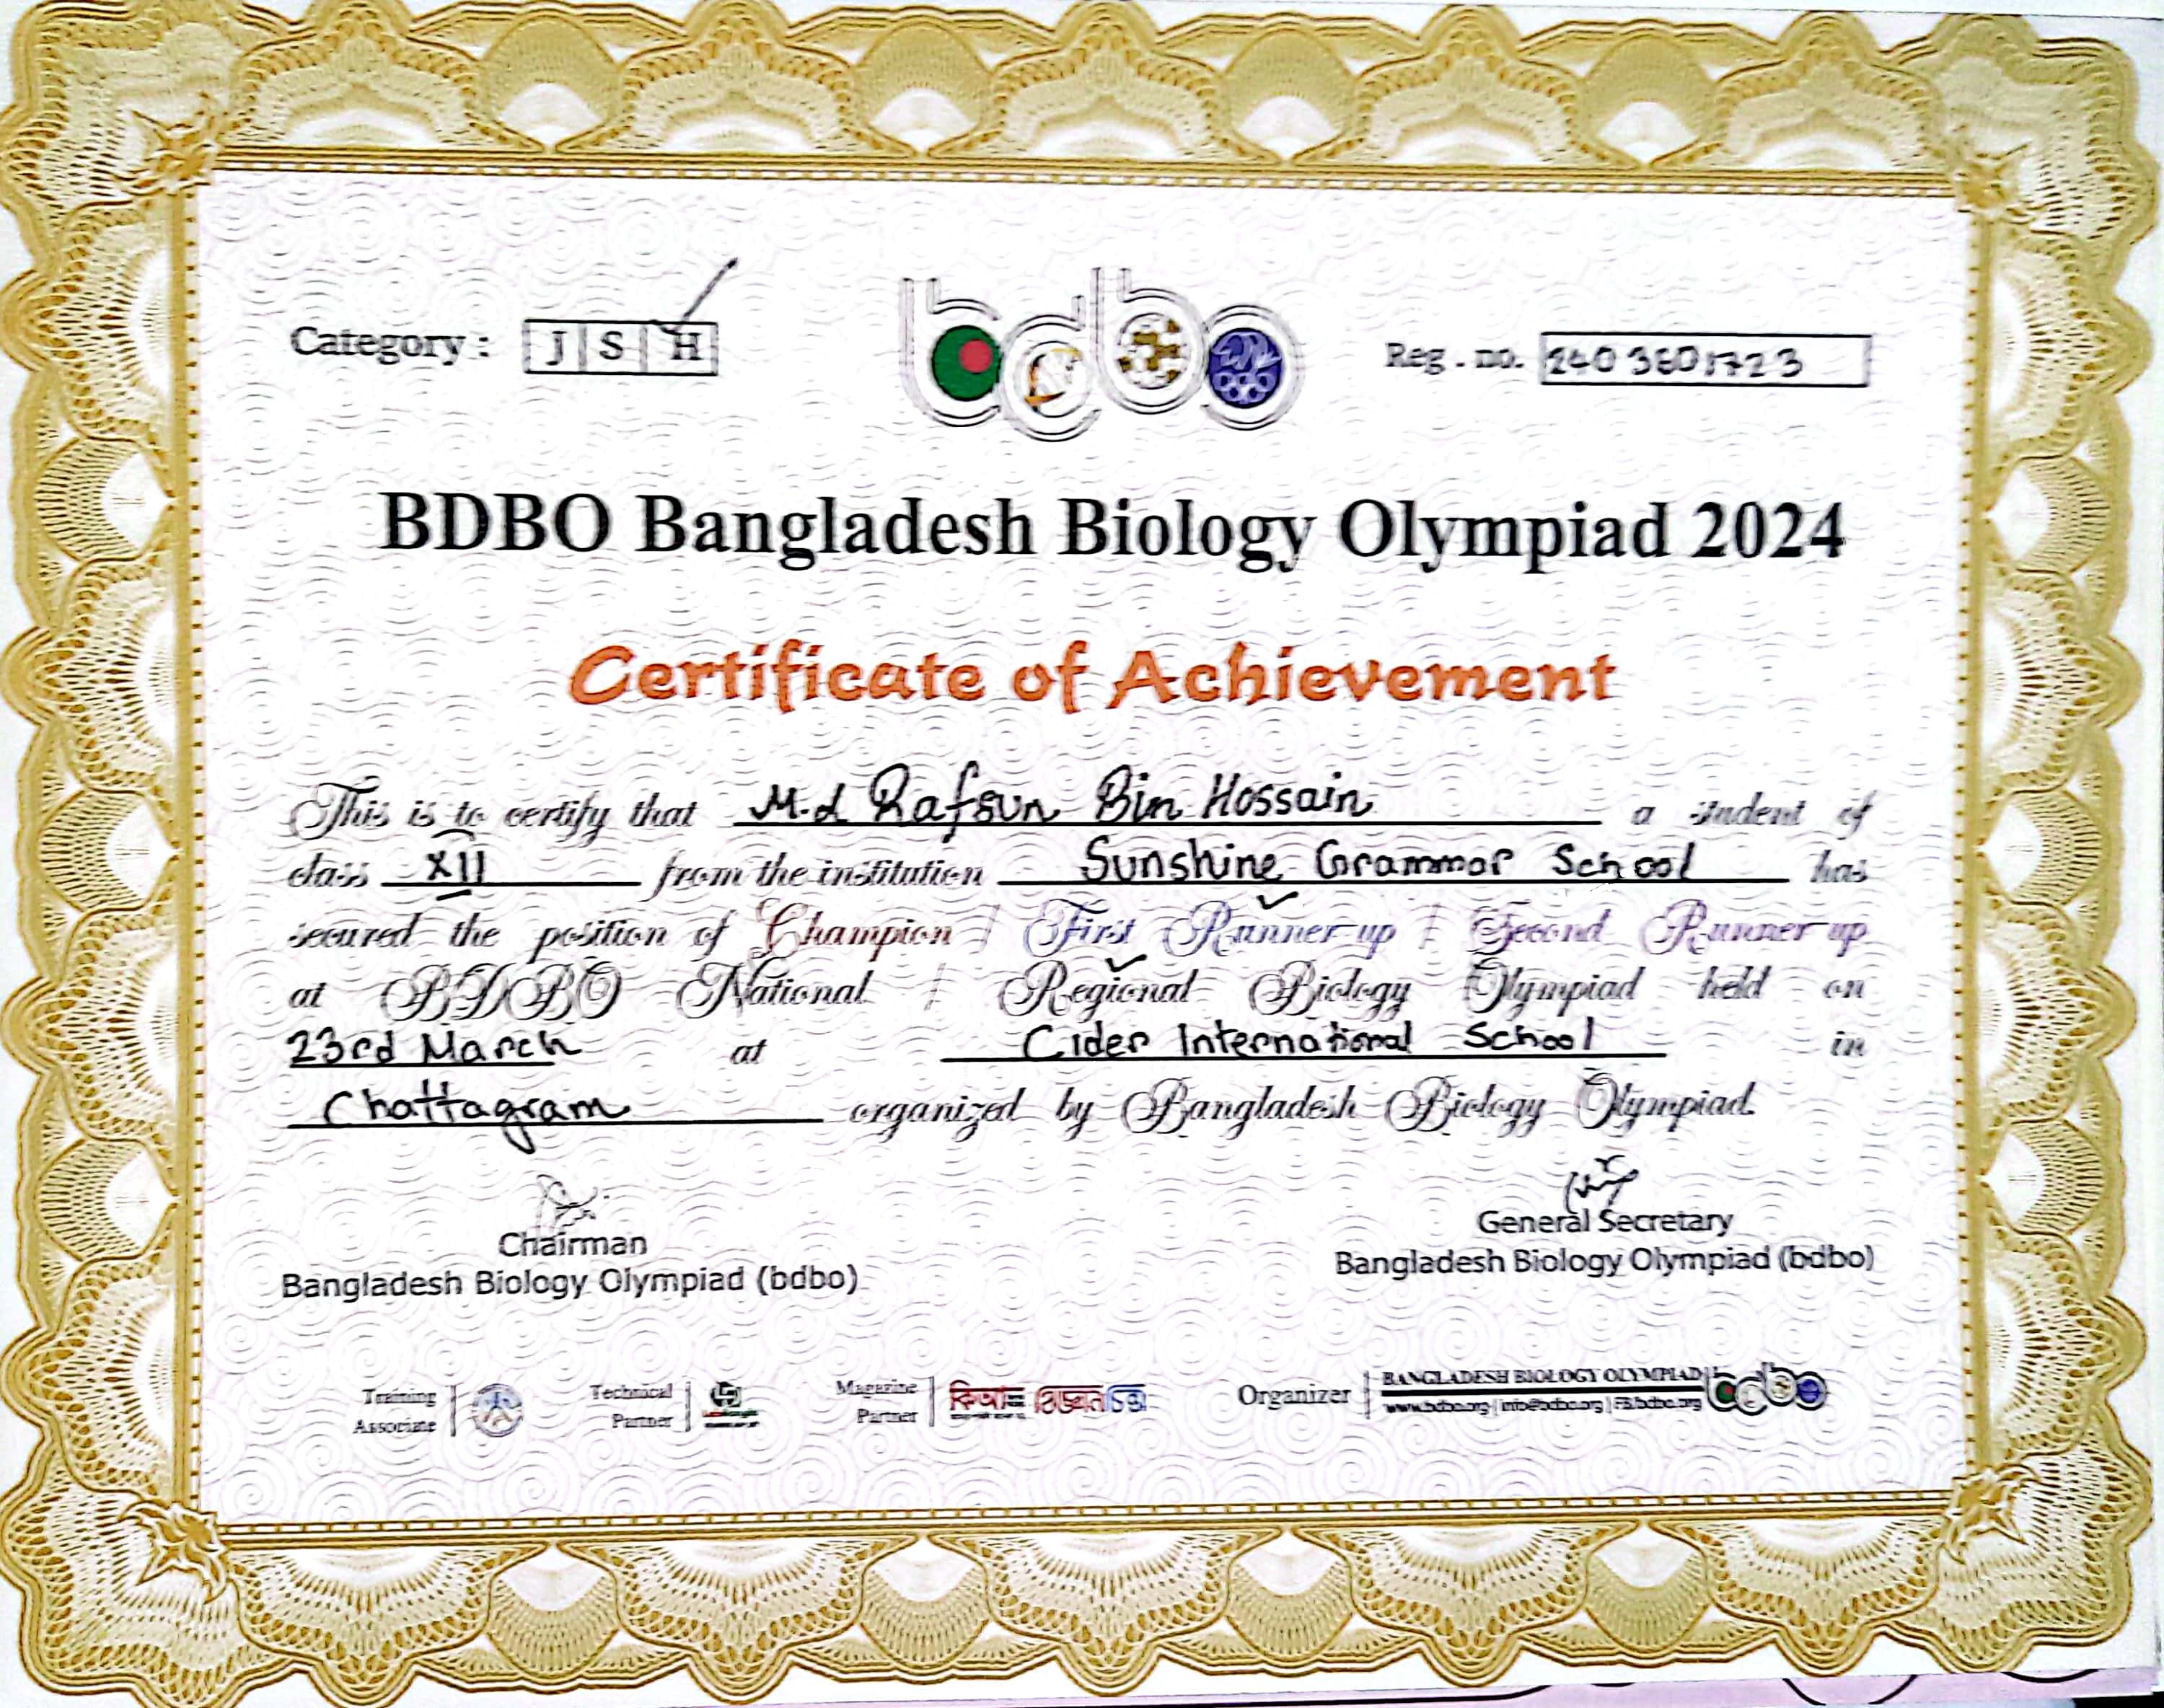 Category : J S H
Reg . no. 2403601723
bdbo
BDBO Bangladesh Biology Olympiad 2024
Certificate of Achievement
This is to certify that M.d Rafsun Bin Hossain a student of
class XII from the institution Sunshine Grammar School has
secured the position of Champion / First Runner-up / Second Runner-up
at BDBO National / Regional Biology Olympiad held on
23rd March at Cider International School in
Chattagram organized by Bangladesh Biology Olympiad.
Chairman
Bangladesh Biology Olympiad (bdbo)
General Secretary
Bangladesh Biology Olympiad (bdbo)
Training
Associate
Technical
Partner
Magazine
Partner
কিআ
Organizer
BANGLADESH BIOLOGY OLYMPIAD
www.bdbo.org | info@bdbo.org | FB.bdbo.org
bdbo